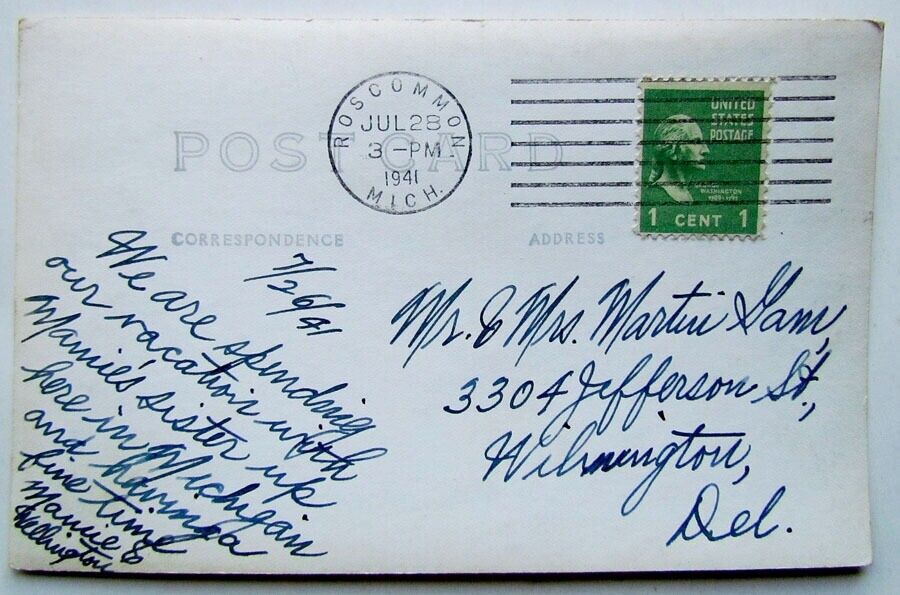 POST CARD
ROSCOMMON
JUL 28
3 - PM
1941
MICH.
UNITED
STATES
POSTAGE
GEORGE
WASHINGTON
1 CENT 1
CORRESPONDENCE
ADDRESS
7/26/41
We are spending
our vacation with
Mamie's sister up
here in Michigan
and having a
fine time
Mamie &
Wellington
Mr. & Mrs. Martin Gam,
3304 Jefferson St,
Wilmington,
Del.